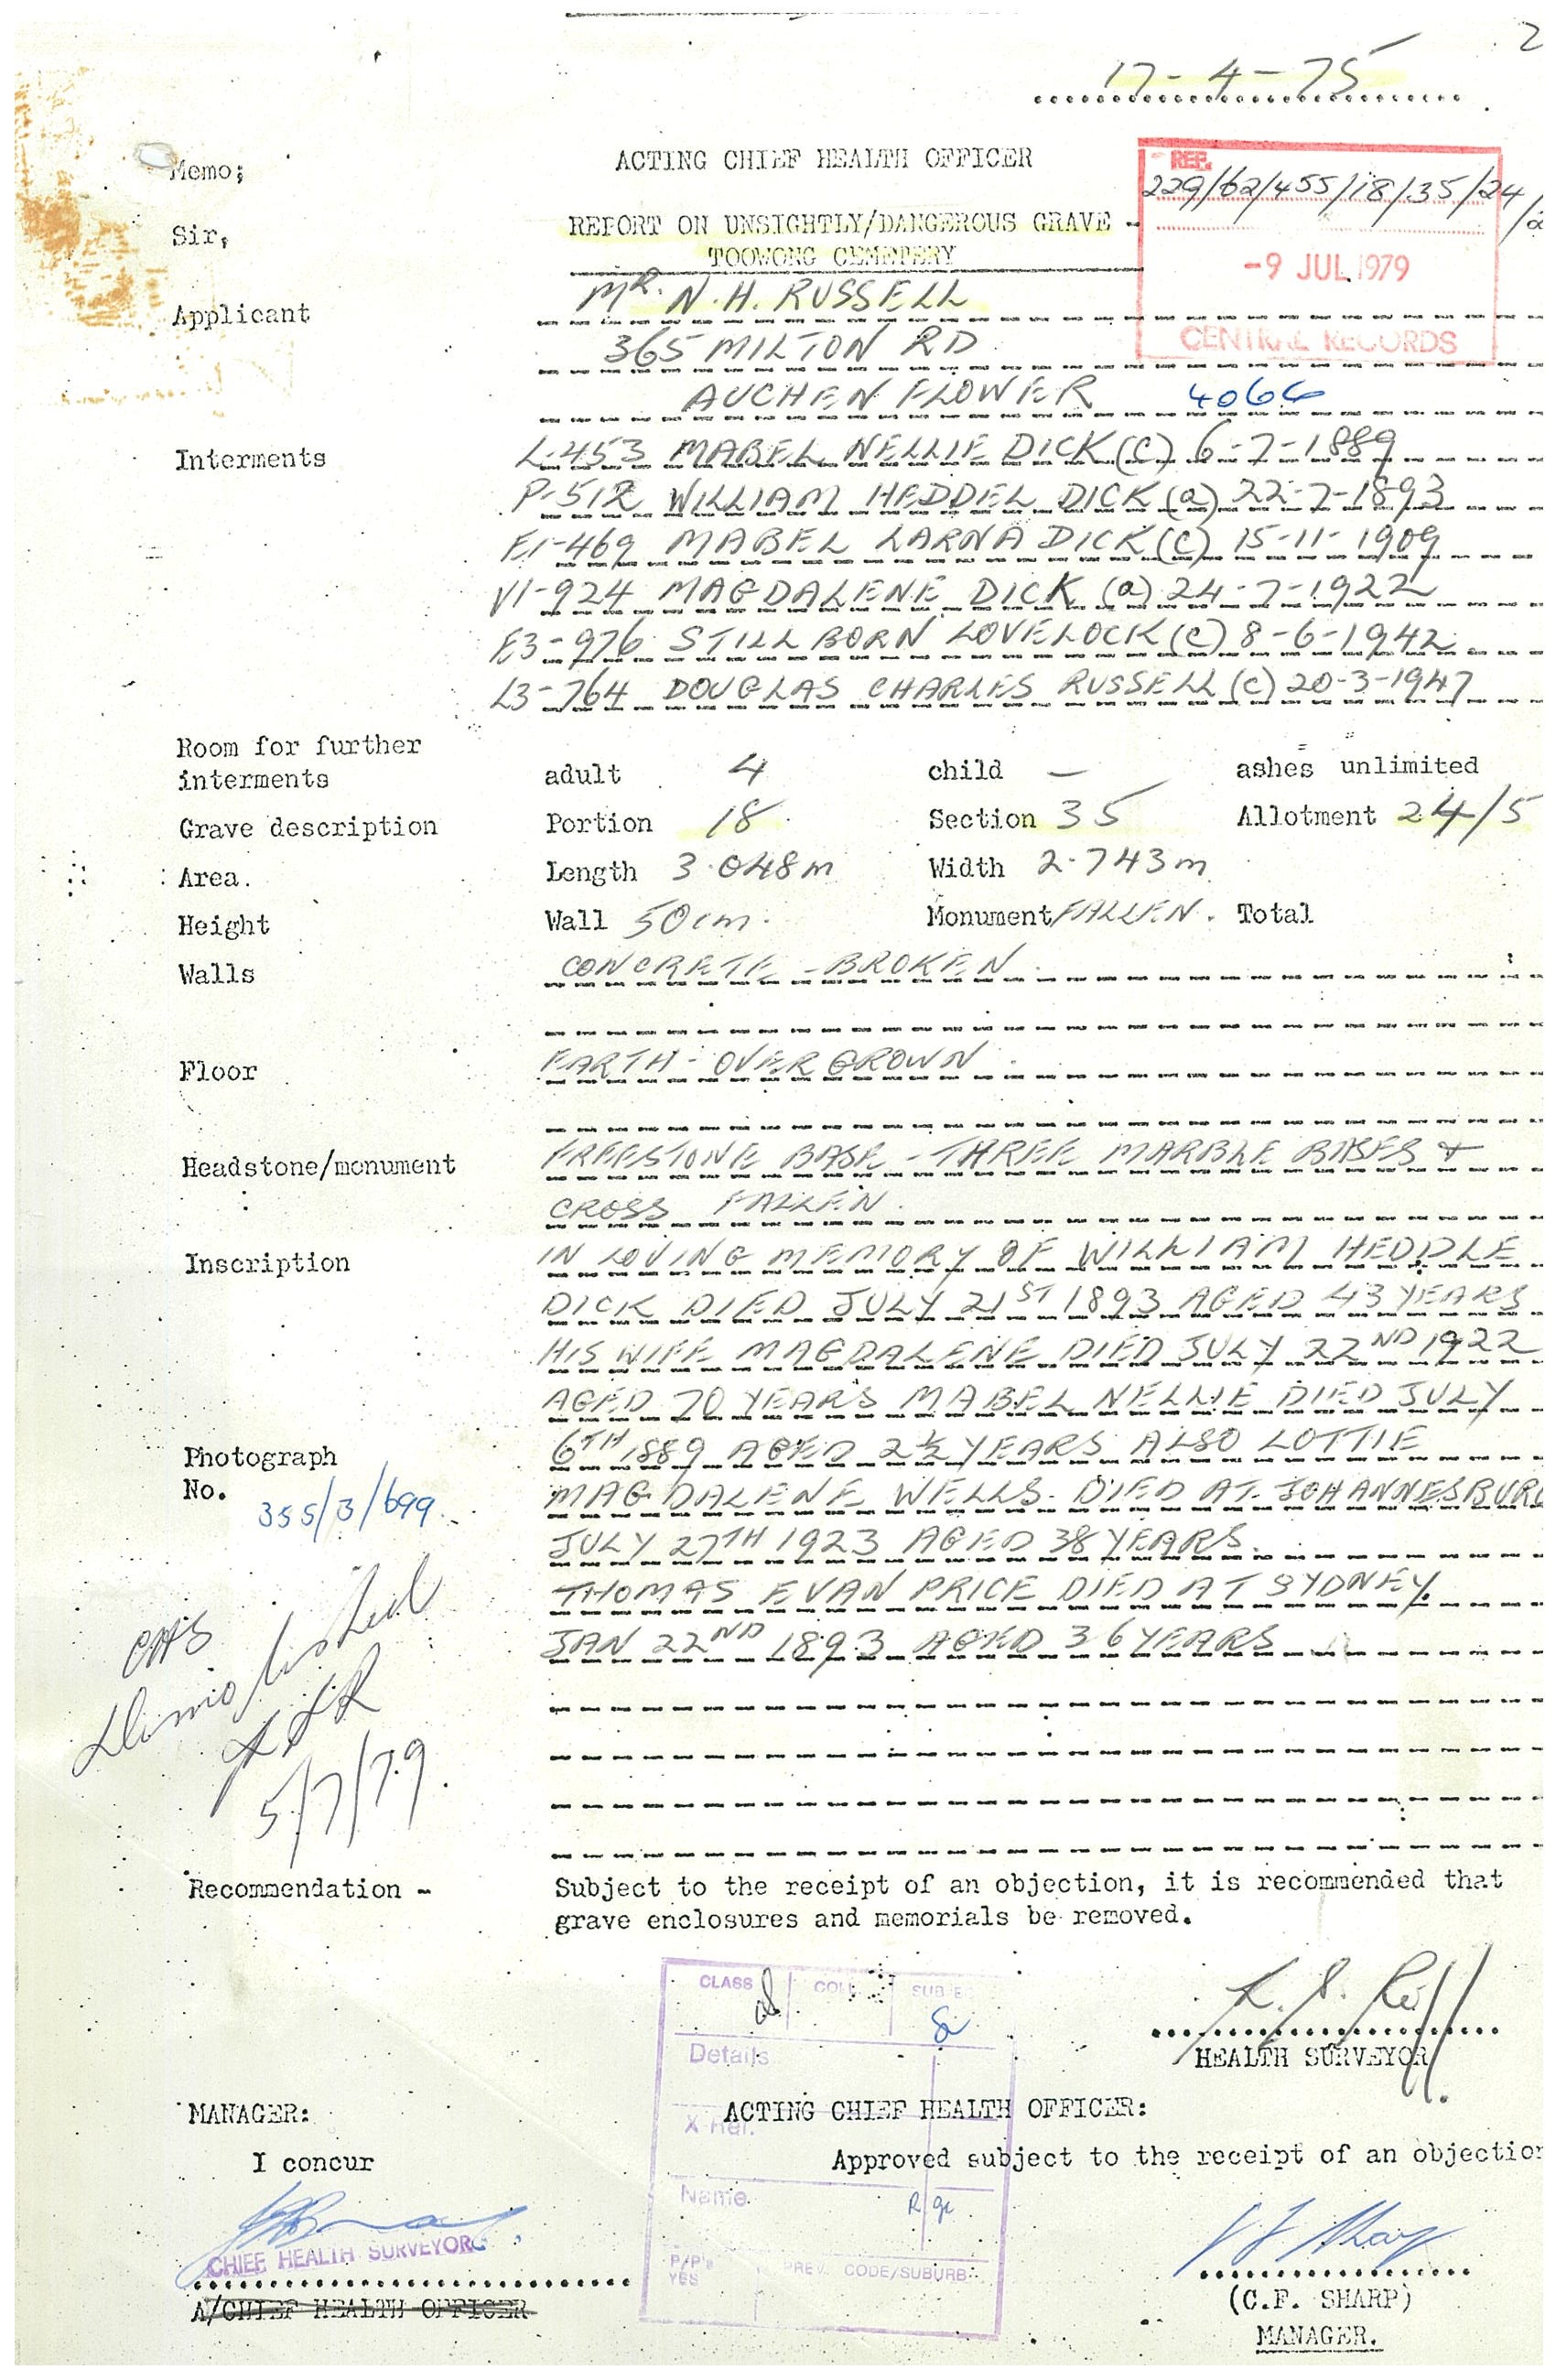 2
17-4-75
Memo; ACTING CHIEF HEALTH OFFICER
REP.
229/62/455/18/35/24
Sir, REPORT ON UNSIGHTLY/DANGEROUS GRAVE -
TOOWONG CEMETERY
-9 JUL 1979
CENTRAL RECORDS
Applicant MR. N.H. RUSSELL
365 MILTON RD
AUCHENFLOWER 4066
Interments L-453 MABEL NELLIE DICK (C) 6-7-1889
P-512 WILLIAM HEDDEL DICK (a) 22-7-1893
E1-469 MABEL LARNA DICK (C) 15-11-1909
V1-924 MAGDALENE DICK (a) 24-7-1922
E3-976 STILLBORN LOVELOCK (C) 8-6-1942
L3-764 DOUGLAS CHARLES RUSSELL (C) 20-3-1947
Room for further
interments adult 4 child — ashes unlimited
Grave description Portion 18 Section 35 Allotment 24/5
Area. Length 3.048m Width 2.743m
Height Wall 50cm. Monument FALLEN. Total
Walls CONCRETE - BROKEN
Floor EARTH - OVERGROWN
Headstone/monument FREESTONE BASE - THREE MARBLE BASES +
CROSS FALLEN.
Inscription IN LOVING MEMORY OF WILLIAM HEDDLE
DICK DIED JULY 21ST 1893 AGED 43 YEARS
HIS WIFE MAGDALENE DIED JULY 22ND 1922
AGED 70 YEARS MABEL NELLIE DIED JULY
Photograph 6TH 1889 AGED 2½ YEARS ALSO LOTTIE
No. 355/3/699. MAGDALENE WELLS. DIED AT JOHANNESBURG
JULY 27TH 1923 AGED 38 YEARS.
THOMAS EVAN PRICE DIED AT SYDNEY.
JAN 22ND 1893 AGED 36 YEARS
5/7/79.
Recommendation - Subject to the receipt of an objection, it is recommended that
grave enclosures and memorials be removed.
CLASS COLL SUBJEC
Details
HEALTH SURVEYOR
MANAGER: ACTING CHIEF HEALTH OFFICER:
X Ref.
I concur Approved subject to the receipt of an objection
Name
CHIEF HEALTH SURVEYOR
P/P's
YES PREV. CODE/SUBURB
A/CHIEF HEALTH OFFICER
(C.F. SHARP)
MANAGER.